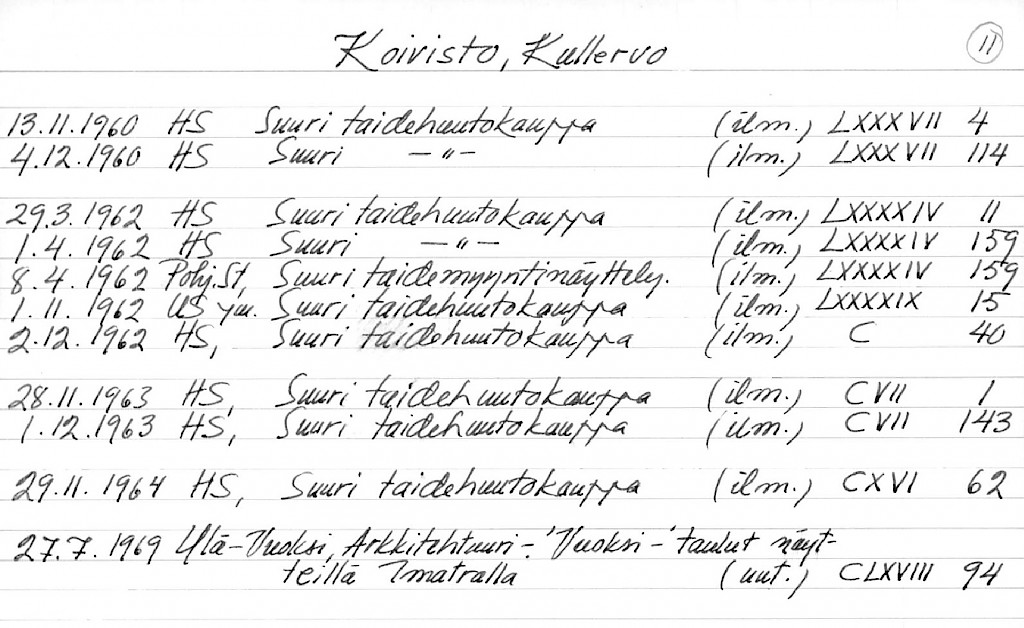 Koivisto, Kullervo 11
13.11.1960 HS Suuri taidehuutokauppa (ilm.) LXXXVII 4
4.12.1960 HS Suuri —"— (ilm.) LXXXVII 114
29.3.1962 HS Suuri taidehuutokauppa (ilm.) LXXXXIV 11
1.4.1962 HS Suuri —"— (ilm.) LXXXXIV 159
8.4.1962 Pohj.St, Suuri taidemyyntinäyttely. (ilm.) LXXXXIV 159
1.11.1962 US ym. Suuri taidehuutokauppa (ilm.) LXXXXIX 15
2.12.1962 HS, Suuri taidehuutokauppa (ilm.) C 40
28.11.1963 HS, Suuri taidehuutokauppa (ilm.) CVII 1
1.12.1963 HS, Suuri taidehuutokauppa (ilm.) CVII 143
29.11.1964 HS, Suuri taidehuutokauppa (ilm.) CXVI 62
27.7.1969 Ylä-Vuoksi, Arkkitehtuuri-. 'Vuoksi-' taulut näyt-
teillä Imatralla (uut.) CLXVIII 94